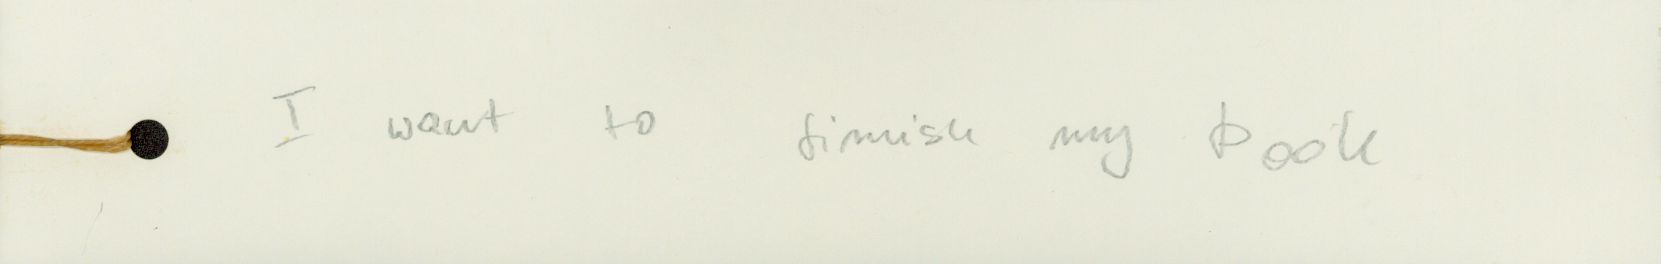 I want to finish my book